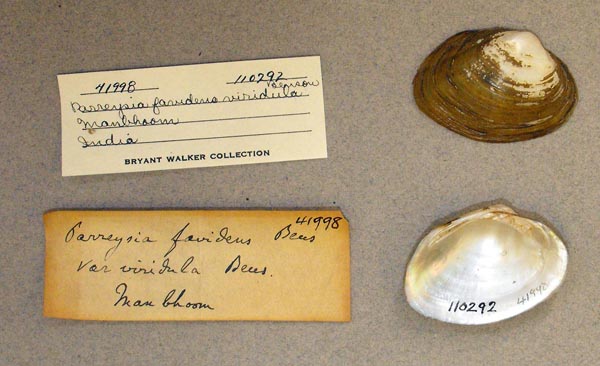 41998 110292
Parreysia favidens viridula Benson
Manbhoom
India
BRYANT WALKER COLLECTION
41998
Parreysia favidens Bens
Var viridula Bens.
Manbhoom
110292